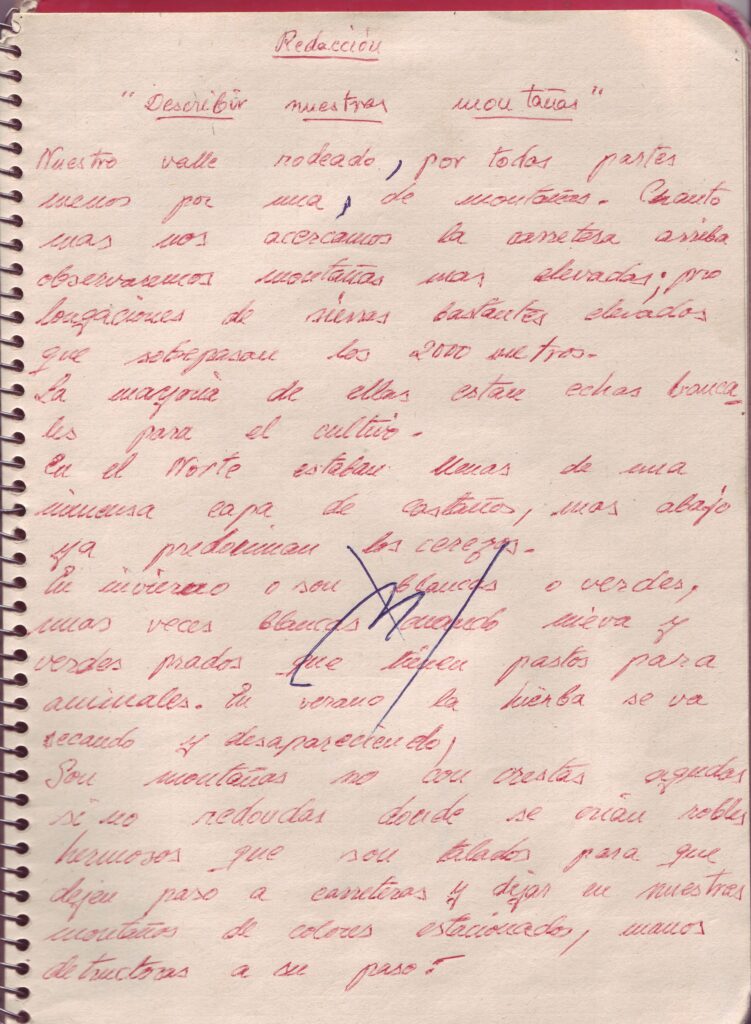 Redacción
"Describir nuestras montañas"
Nuestro valle rodeado, por todas partes
menos por una, de montañas. Cuanto
mas nos acercamos la carretera arriba
observaremos montañas mas elevadas; pro
longaciones de sierras bastantes elevadas
que sobrepasan los 2000 metros.
La mayoria de ellas estan echas banca-
les para el cultivo.
En el Norte estaban llenas de una
inmensa capa de castaños, mas abajo
ya predominan los cerezos.
En invierno o son blancas o verdes,
unas veces blancas cuando nieva y
verdes prados que tienen pastos para
animales. En verano la hierba se va
secando y desapareciendo,
Son montañas no con crestas agudas
si no redondas donde se crian robles
hermosos que son talados para que
dejen paso a carreteras y dejar en nuestras
montañas de colores estacionados, manos
detructoras a su paso!